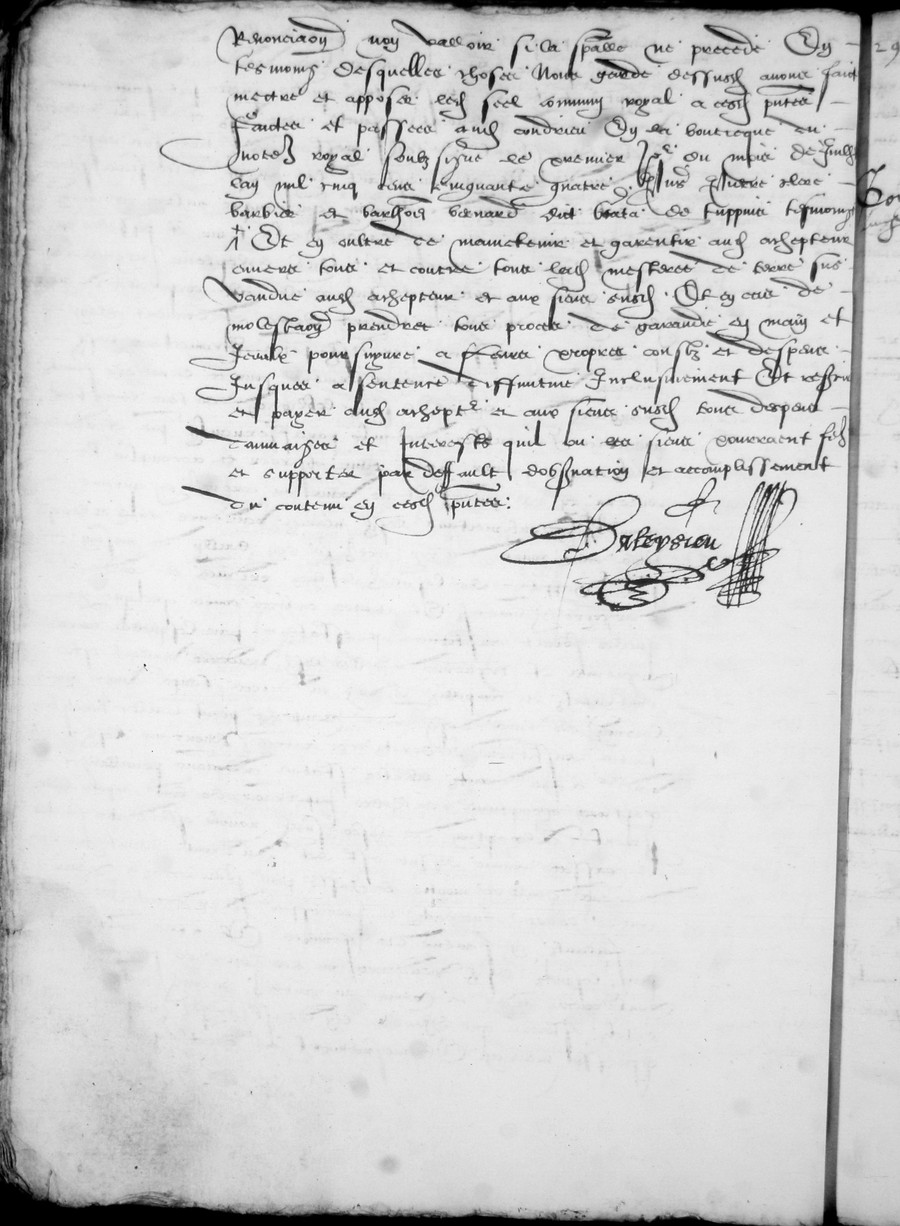 Renonciaoñ noy valloir si la spalle ne precede En
tesmoing desquelles choses Nous garde dessusd avons faict
mectre et apposer led seel commun royal a cesd pntes
faictes et passees aud condrieu En la bouticque du
notere royal soubz signe le premier jor du mois de
lan mil cinq cens cinquante quatre pns clerc
barbier et barthol bernard dit de tuppins tesmoingz
Et en oultre de maintenir et garentir aud achepteur
envers tous et contre tous lad mesteree de terre sus
vandue aud achepteur et aux siens susd Et en cas de
molestaoñ prendre tous proces de garandie en main et
Iceulx poursuyvre a ses propres coustz et despens
Jusques a sentence diffinitive Inclusivement Et
et payer aud achept et aux siens susd tous despens
dommaiges et Interestz quil ou les siens pourroent
et supporter par deffault dobs̄nation et accomplissement
du contenu en cesd pntes.
Daleysieu